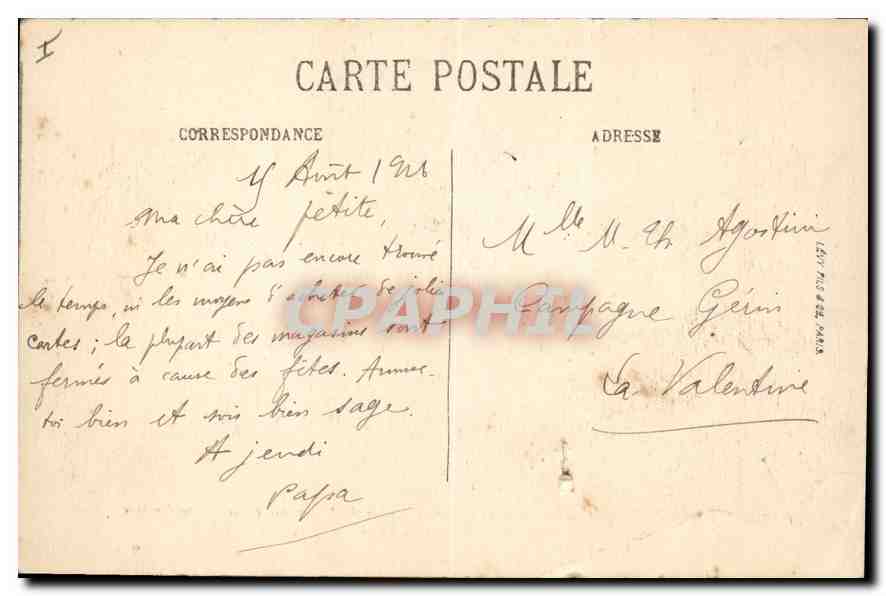 I
CARTE POSTALE
CORRESPONDANCE
15 Août 1926
Ma chère petite,
Je n'ai pas encore trouvé
le temps, ni les moyens d'acheter de jolies
cartes ; la plupart des magasins sont
fermés à cause des fêtes. Amuse-
toi bien et sois bien sage.
A jeudi
Papa
ADRESSE
Mlle M. Th Agostini
Campagne Gérin
La Valentine
LÉVY FILS & CIE, PARIS.
CPAPHIL